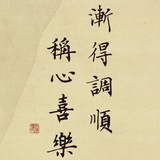 漸得調順
稱心喜樂